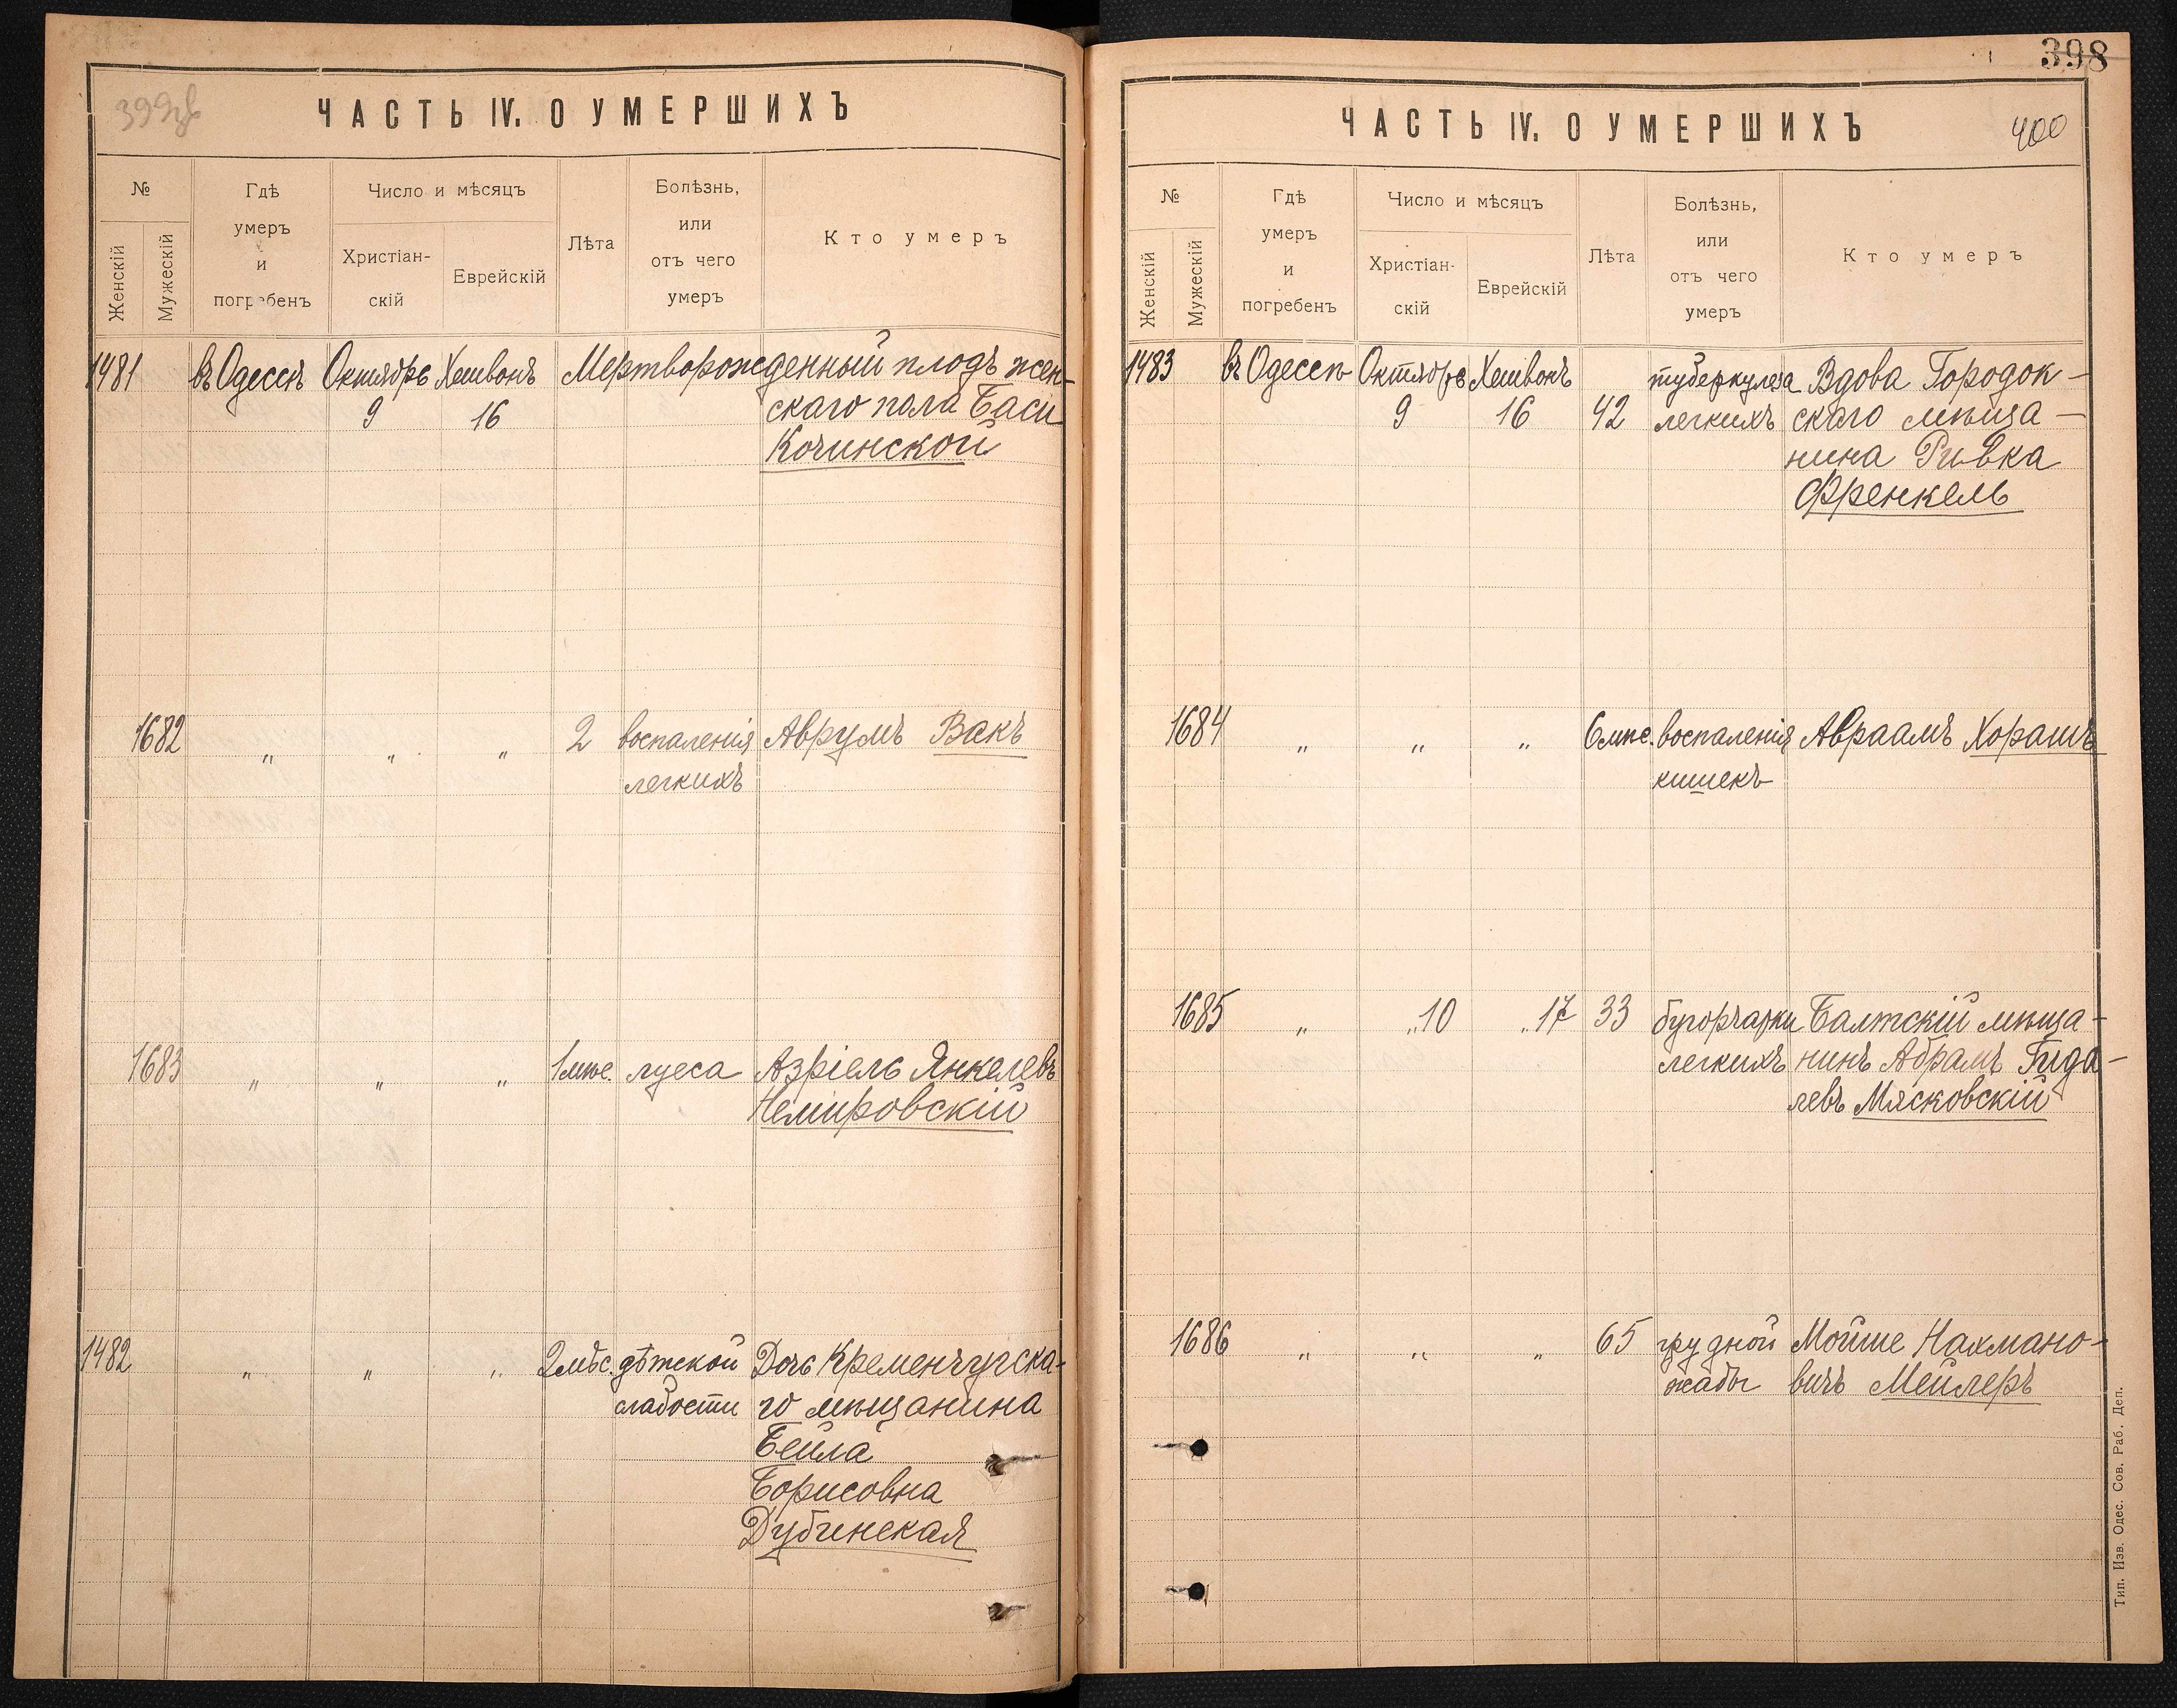 399зв
ЧАСТЬ IV. О УМЕРШИХЪ
№
Женскій
Мужескій
Гдѣ
умеръ
и
погребенъ
Число и мѣсяцъ
Христіан-
скій
Еврейскій
Лѣта
Болѣзнь,
или
отъ чего
умеръ
Кто умеръ
1481 въ Одессѣ Октябрь Хешвонъ Мертворожденный плодъ жен-
9 16 скаго пола Баси
Кочинской
1682 " " " 2 воспаленія Аврумъ Вакъ
легкихъ
1683 " " " 1 мѣс. луеса Азріель Янкелевъ
Немировскій
1482 " " " 2 мѣс. дѣтской Дочь Кременчугска-
слабости го мѣщанина
Бейла
Борисовна
Дубинская
398
ЧАСТЬ IV. О УМЕРШИХЪ
400
№
Женскій
Мужескій
Гдѣ
умеръ
и
погребенъ
Число и мѣсяцъ
Христіан-
скій
Еврейскій
Лѣта
Болѣзнь,
или
отъ чего
умеръ
Кто умеръ
1483 въ Одессѣ Октябрь Хешвонъ туберкулеза Вдова Городок-
9 16 42 легкихъ скаго мѣща-
нина Ривка
Френкель
1684 " " " 6 мѣс. воспаленія Авраамъ Хорашъ
кишекъ
1685 " " 10 " 17 33 бугорчатки Балтскій мѣща-
легкихъ нинъ Абрамъ Гида-
левъ Мясковскій
1686 " " " 65 грудной Мойше Нахмано-
жабы вичъ Мейлеръ
Тип. Изв. Одес. Сов. Раб. Деп.